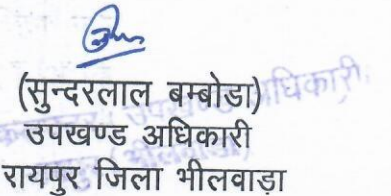 (सुन्दरलाल बम्बोडा)
उपखण्ड अधिकारी
रायपुर जिला भीलवाड़ा